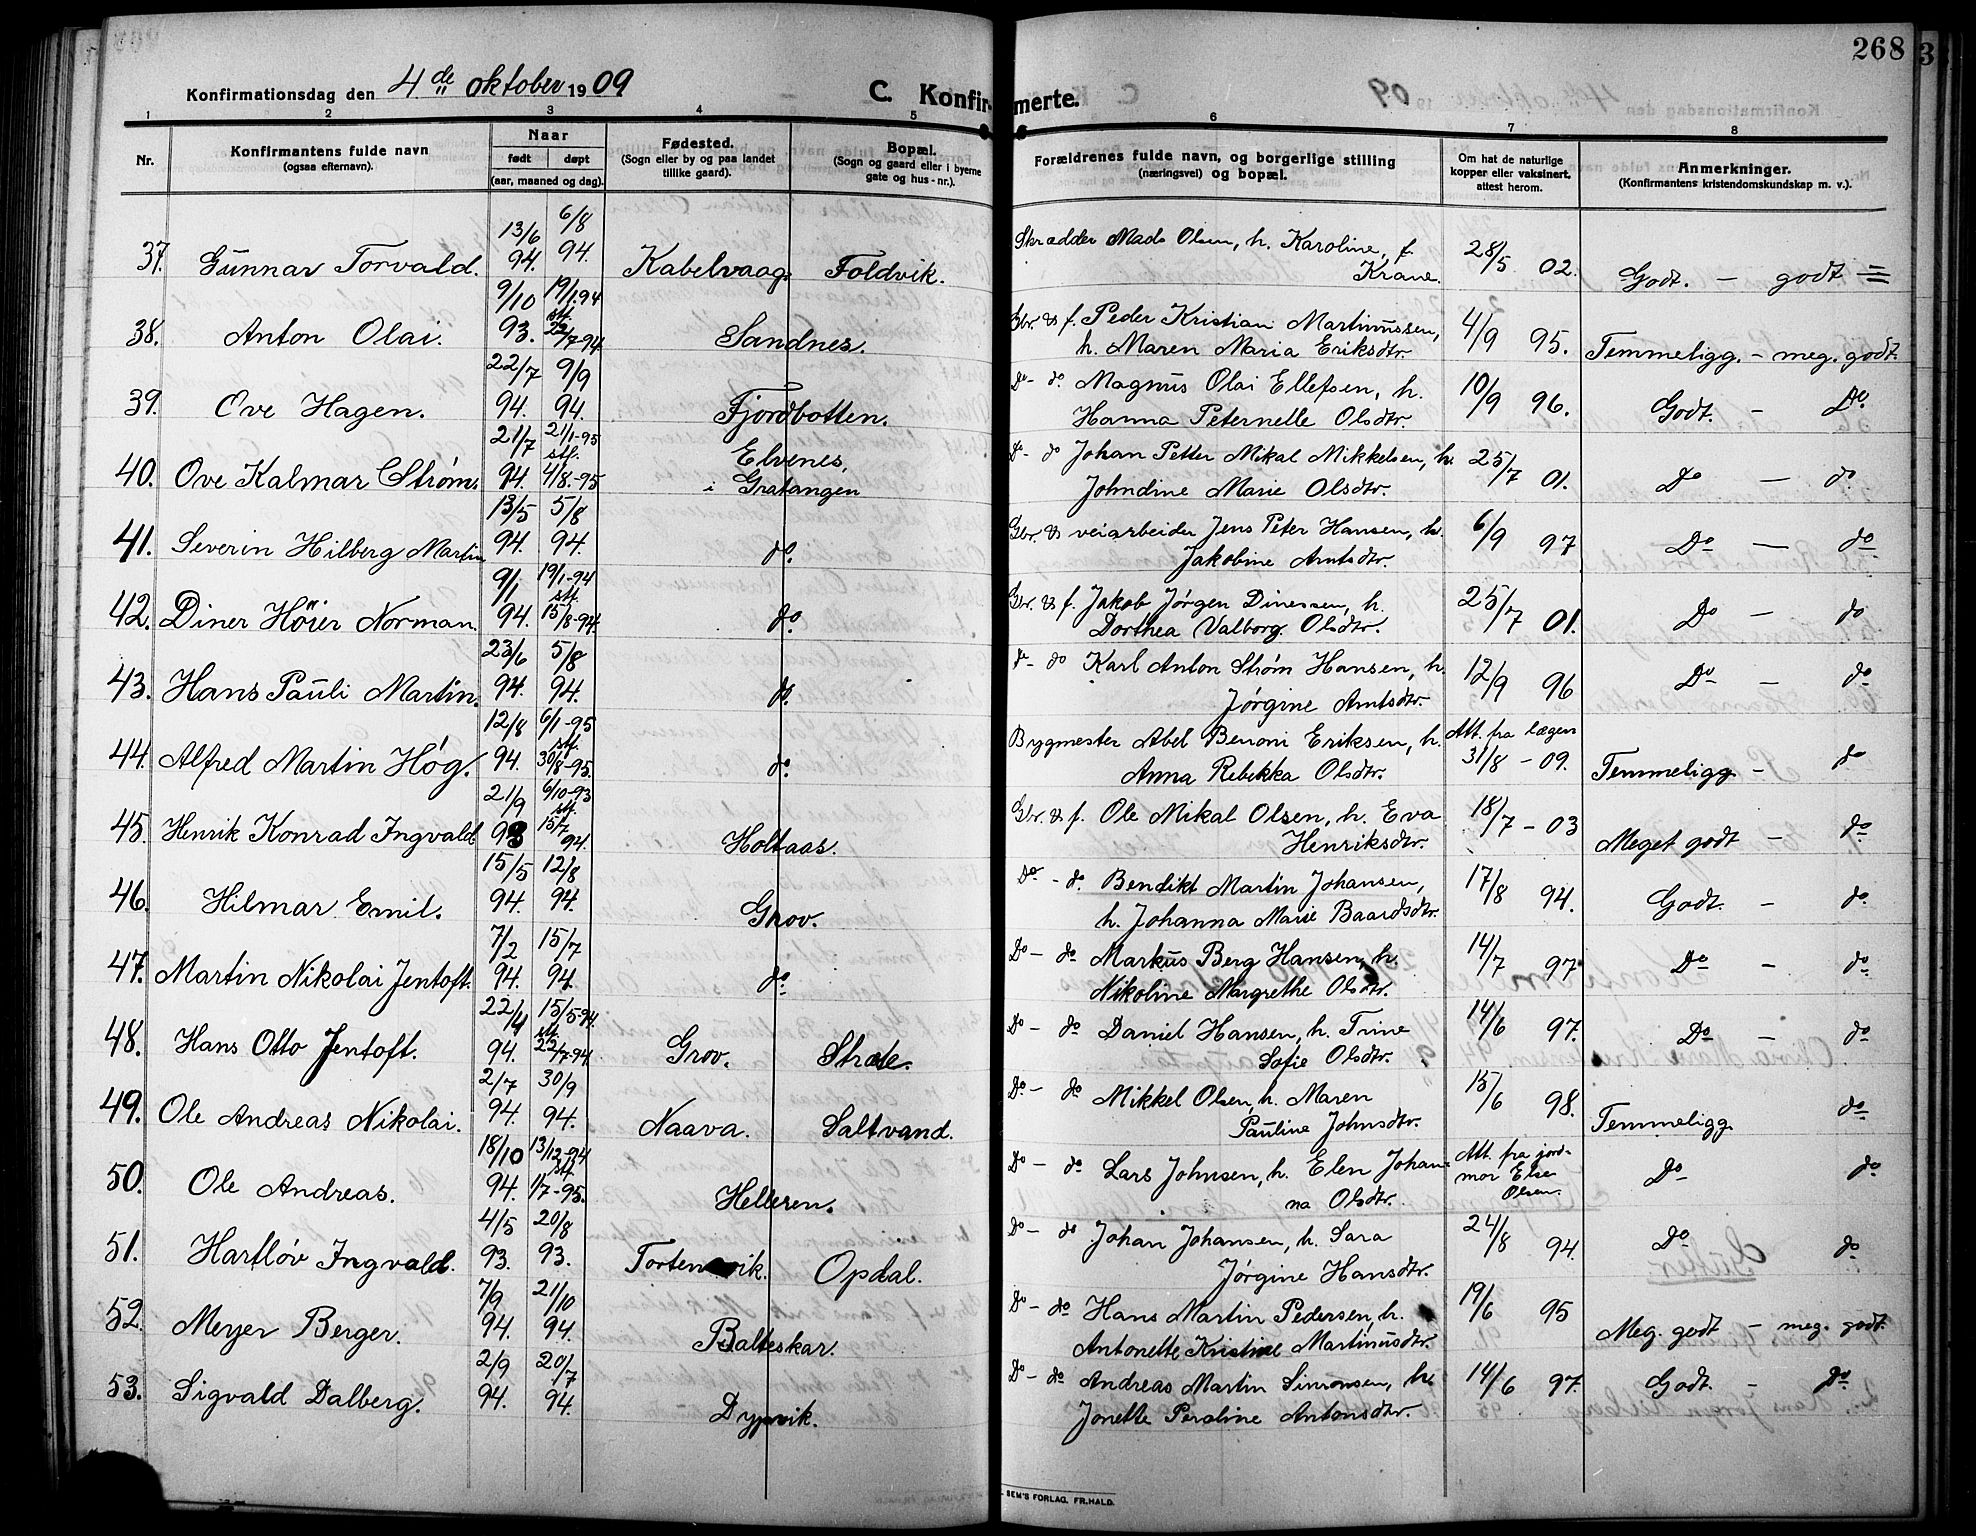 268
Konfirmationsdag den 4de oktober 1909
C. Konfirmerte.
1 2 3 4 5 6 7 8
Nr.
Konfirmantens fulde navn
(ogsaa efternavn).
Naar
født døpt
(aar, maaned og dag).
Fødested.
(Sogn eller by og paa landet
tillike gaard).
Bopæl.
(Sogn og gaard eller i byerne
gate og hus-nr.).
Forældrenes fulde navn, og borgerlige stilling
(næringsvei) og bopæl.
Om hat de naturlige
kopper eller vaksinert,
attest herom.
Anmerkninger.
(Konfirmantens kristendomskundskap m. v.).
13/6 6/8
37. Gunnar Torvald. 94. 94. Kabelvaag. Foldvik. Skrædder Mads Olsen, h. Karoline, f. 28/5 02. Godt. — godt =
Krane.
9/10 19/1.94
stf.
38. Anton Olai. 93. 22/7-94 Sandnes. Gbr. & f. Peder Kristian Martinussen, 4/9 95. Temmeligg. – meg. godt.
h. Maren Maria Eriksdtr.
22/7 9/9
39. Ove Hagen. 94. 94. Fjordbotten. Do - do. Magnus Olai Ellefsen, h. 10/9 96. Godt. – Do
Hanna Peternelle Olsdtr.
21/7 21/1-95
stf.
40. Ove Kalmar Strøm. 94. 4/8.-95 Elvenes, Do - do Johan Petter Mikal Mikkelsen, h. 25/7 01. Do — do
i Gratangen Johndine Marie Olsdtr.
13/5 5/8
41. Severin Hilberg Martin 94. 94. do. Gbr. & veiarbeider Jens Peter Hansen, h. 6/9 97 Do — do
Jakobine Arntsdtr.
9/1 19/1-94
stf.
42. Diner Höier Norman. 94. 15/8-94. do. Gbr. & f. Jakob Jørgen Dinessen, h. 25/7 01. Do – do
Dorthea Valborg Olsdtr.
23/6 5/8
43. Hans Pauli Martin. 94. 94. do. do - do Karl Anton Strøm Hansen, h. 12/9 96 Do – do
Jørgine Arntsdtr.
12/8 6/1-95
stf.
44. Alfred Martin Høg. 94. 30/8-95. do. Bygmester Abel Benoni Eriksen, h. Att. fra lægen
Anna Rebekka Olsdtr. 31/8 - 09. Temmeligg. – do
21/9 6/10-93
stf.
45. Henrik Konrad Ingvald 93 15/7 94. Holtaas. Gbr. & f. Ole Mikal Olsen, h. Eva 18/7 - 03 Meget godt – do
Henriksdtr.
15/5 12/8
46. Hilmar Emil. 94. 94. Grov. Do - do. Bendikt Martin Johansen, 17/8 94. Godt. – do.
h. Johanna Marie Baardsdtr.
7/2 15/7
47. Martin Nikolai Jentoft. 94. 94. do. Do - do Markus Berg Hansen, h. 14/7 97. Do – do
Nikoline Margrethe Olsdtr.
22/4 15/5-94.
stf.
48. Hans Otto Jentoft. 94. 22/7-94 Grov. Stræte. Do - do Daniel Hansen, h. Trine 14/6 97. Do – do
Sofie Olsdtr.
2/7 30/9
49. Ole Andreas Nikolai. 94. 94. Naava. Saltvand. Do - do Mikkel Olsen, h. Maren 15/6 98. Temmeligg. do
Pauline Johnsdtr.
18/10 13/12-94
stf.
50. Ole Andreas. 94. 1/7-95. Helleren. Do - do Lars Johnsen, h. Elen Johan- Att. fra jord-
na Olsdtr. mor Else Do do
Olsen.
4/5 20/8
51. Hartløv Ingvald. 93. 93. Tortenvik. Opdal. Do - do Johan Johansen, h. Sara 24/8 94. Do do
Jørgine Hansdtr.
7/9 21/10
52. Meyer Berger. 94. 94. Balteskar. Do - do Hans Martin Pedersen, h. 19/6 95 Meg. godt – meg. godt.
Antonette Kristine Martinusdtr.
2/9 20/7
53. Sigvald Dalberg. 94. 94. Dypvik. Do - do Andreas Martin Simonsen, h. 14/6 97. Godt. – Do
Jonette Peroline Antonsdtr.
SEM'S FORLAG, FR.HALD.